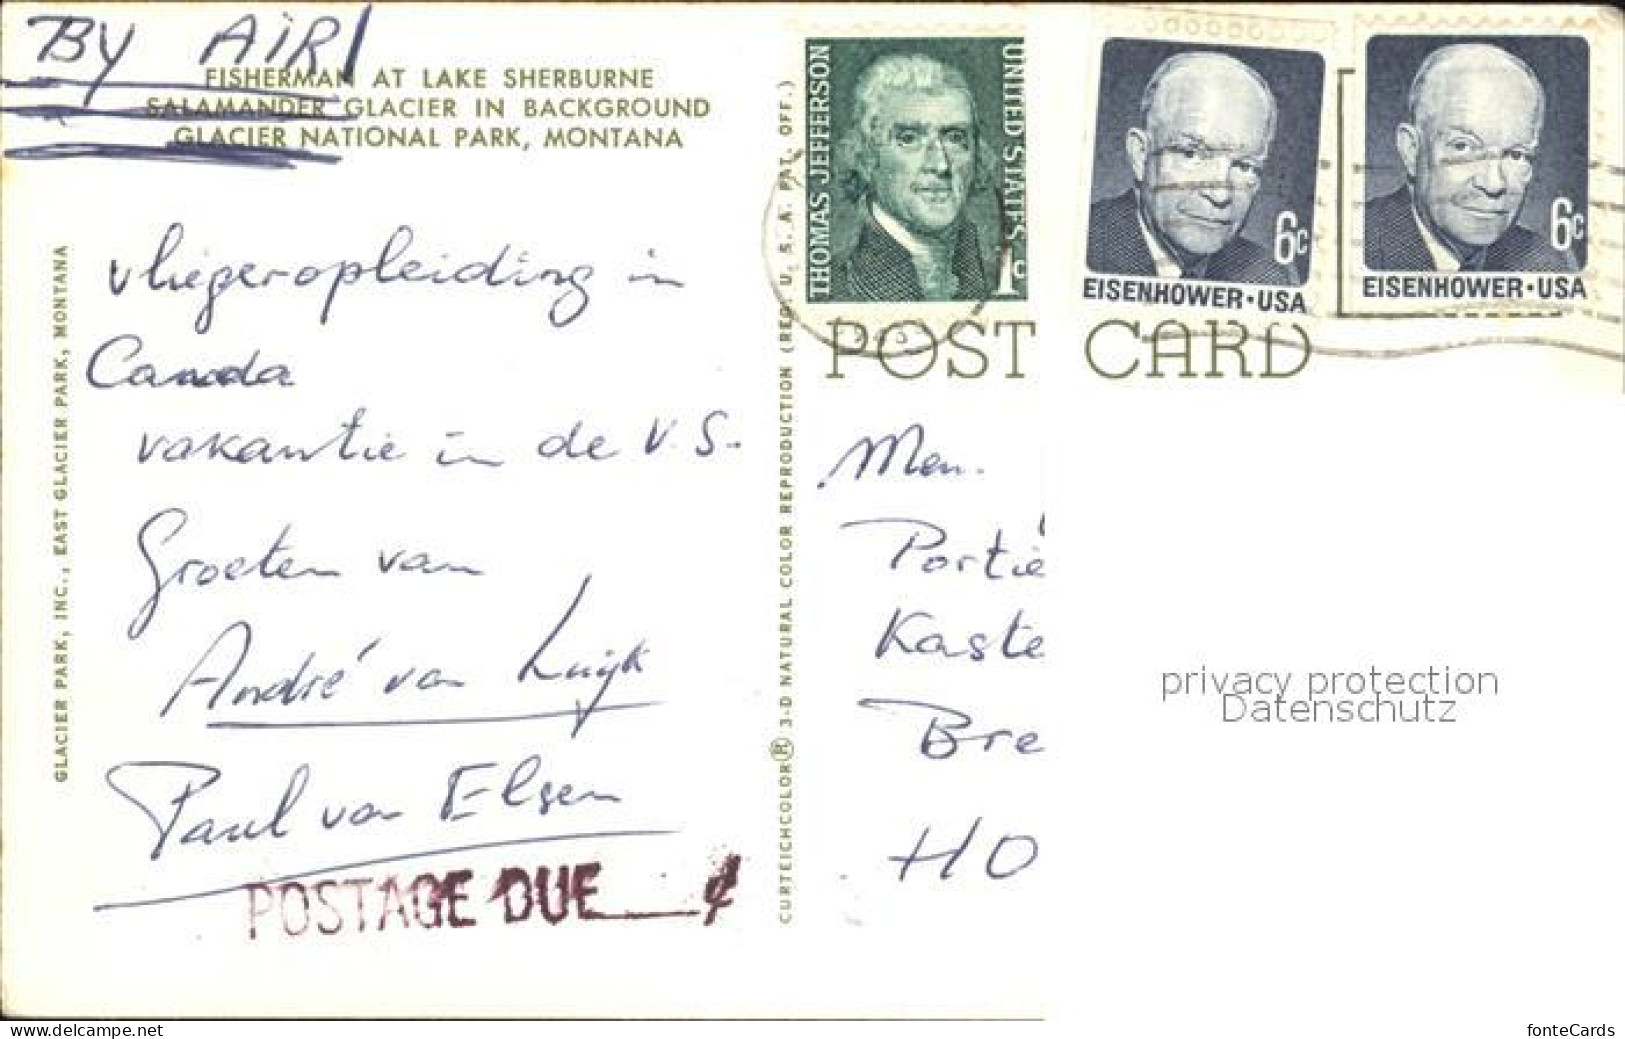 BY AIR
FISHERMAN AT LAKE SHERBURNE
SALAMANDER GLACIER IN BACKGROUND
GLACIER NATIONAL PARK, MONTANA
GLACIER PARK, INC., EAST GLACIER PARK, MONTANA
vliegeropleiding in
Canada
vakantie in de V.S.
Groeten van
André van Luijk
Paul van Elsen
POSTAGE DUE ¢
CURTEICHCOLOR® 3-D NATURAL COLOR REPRODUCTION (REG. U. S. A. PAT. OFF.)
THOMAS JEFFERSON
UNITED STATES
1c
6c
EISENHOWER·USA
6c
EISENHOWER·USA
POST CARD
Men.
Portie
Kaste
Bre
HO
privacy protection
Datenschutz
www.delcampe.net
fonteCards